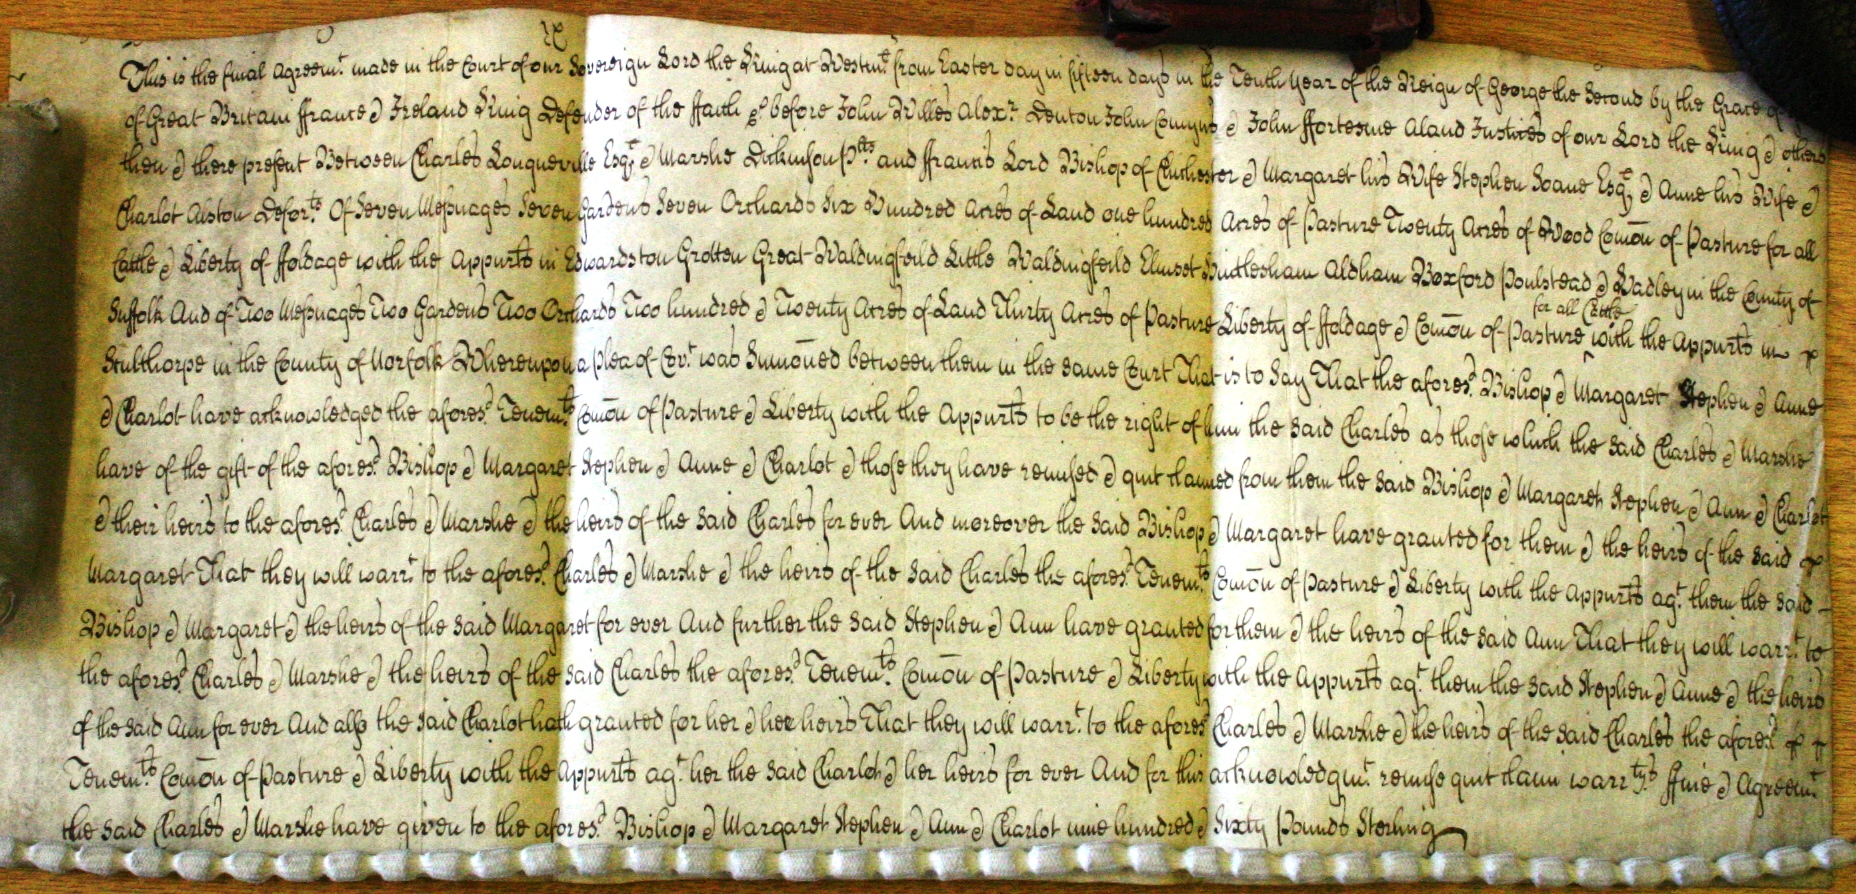 This is the final Agreemt. made in the Court of our Sovereign Lord the King at Westmr. from Easter day in fifteen days in the Tenth year of the Reign of George the Second by the Grace of
of Great Britain ffrance & Ireland King Defender of the ffaith &c. before John Willes Alexr. Denton John Comyns & John ffortescue Aland Justices of our Lord the King & others
then & there present Between Charles Longueville Esqr. & Marshe Dickinson Plts. and ffrancis Lord Bishop of Chichester & Margaret his Wife Stephen Soane Esqr. & Anne his Wife &
Charlot Alston Deforts. Of Seven Messuages Seven Gardens Seven Orchards Six Hundred Acres of Land one hundred Acres of Pasture Twenty Acres of Wood Comōn of Pasture for all
Cattle & Liberty of ffoldage with the Appurts in Edwardston Grotten Great Waldingfeild Little Waldingfeild Elmset Hintlesham Aldham Boxford Poulstead & Hadley in the County of
Suffolk And of Two Messuages Two Gardens Two Orchards Two hundred & Twenty Acres of Land Thirty Acres of Pasture Liberty of ffoldage & Comōn of Pasture for all Cattle with the Appurts in
Stibthorpe in the County of Norfolk Whereupon a plea of Covt. was Sumōned between them in the same Court That is to Say That the aforesd. Bishop & Margaret Stephen & Anne
& Charlot have acknowledged the aforesd. Tenemts. Comōn of Pasture & Liberty with the Appurts to be the right of him the said Charles as those which the said Charles & Marshe
have of the gift of the aforesd. Bishop & Margaret Stephen & Anne & Charlot & those they have remised & quit claimed from them the said Bishop & Margaret Stephen & Ann & Charlot
& their heirs to the aforesd. Charles & Marshe & the heirs of the said Charles for ever And moreover the said Bishop & Margaret have granted for them & the heirs of the said
Margaret That they will warrt. to the aforesd. Charles & Marshe & the heirs of the said Charles the aforesd. Tenemts. Comōn of Pasture & Liberty with the Appurts agt. them the said
Bishop & Margaret & the heirs of the said Margaret for ever And further the said Stephen & Ann have granted for them & the heirs of the said Ann That they will warrt. to
the aforesd. Charles & Marshe & the heirs of the said Charles the aforesd. Tenemts. Comōn of Pasture & Liberty with the Appurts agt. them the said Stephen & Anne & the heirs
of the said Ann for ever And also the said Charlot hath granted for her & her heirs That they will warrt. to the aforesd. Charles & Marshe & the heirs of the said Charles the aforesd.
Tenemts. Comōn of Pasture & Liberty with the Appurts agt. her the said Charlot & her heirs for ever And for this acknowledgmt. remise quit claim warrtys. ffine & Agreemt.
the said Charles & Marshe have given to the aforesd. Bishop & Margaret Stephen & Ann & Charlot nine hundred & Sixty Pounds Sterling